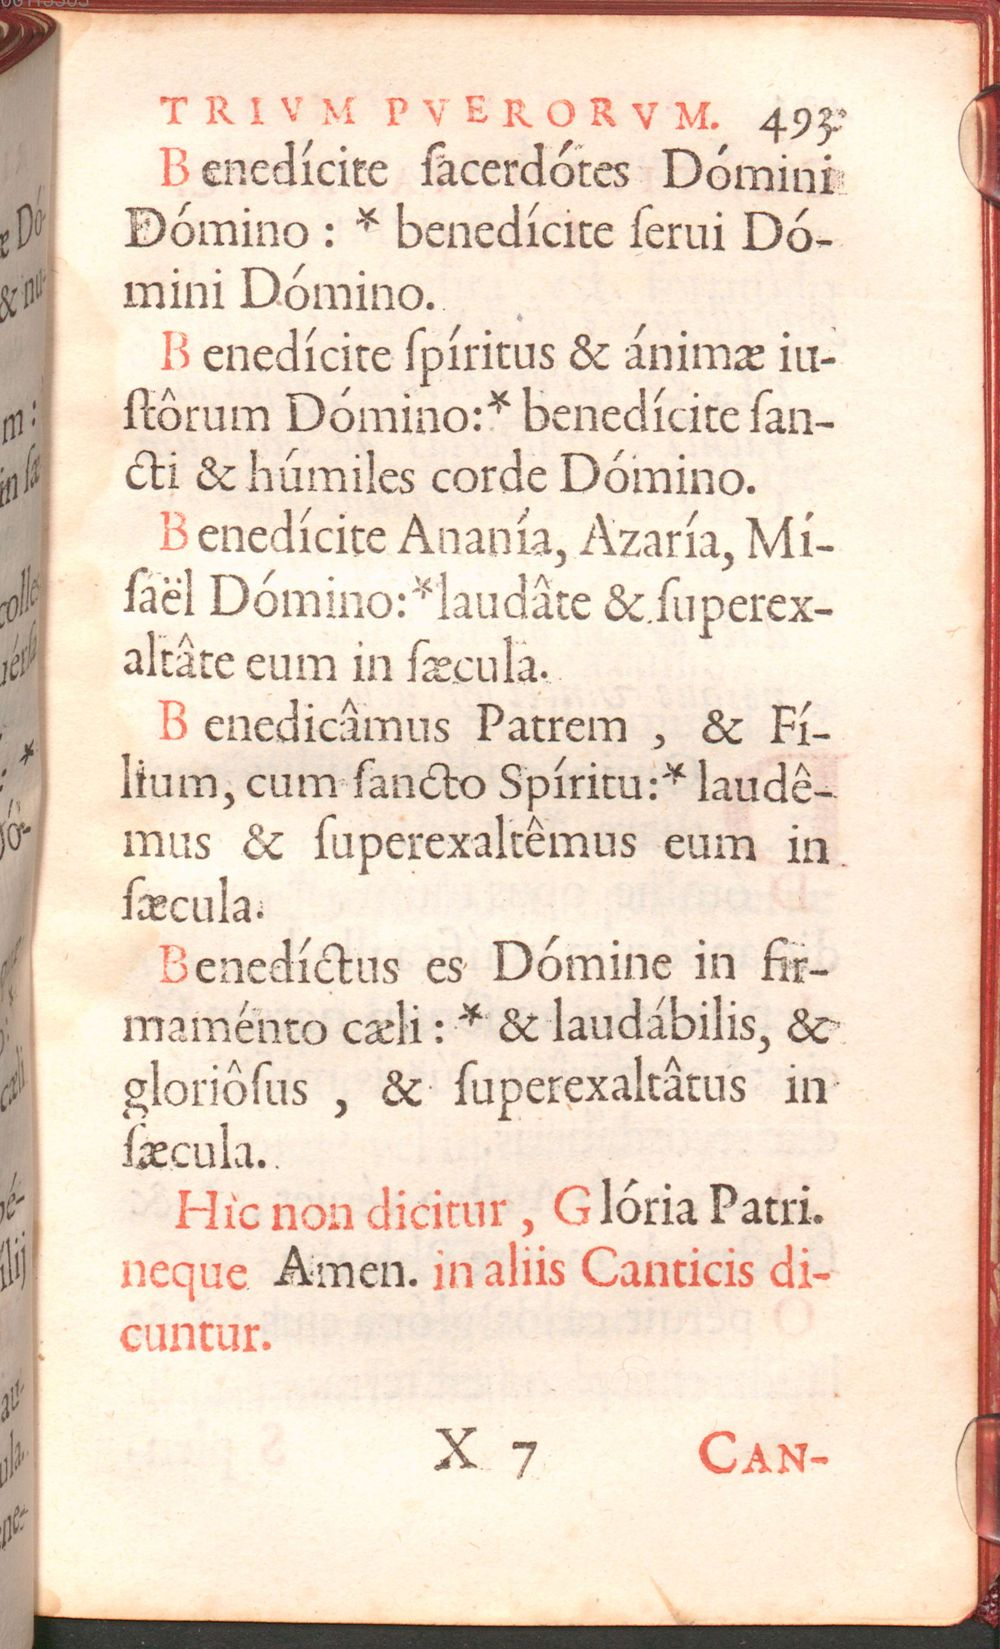 TRIVM PVERORVM. 493
Benedícite ſacerdótes Dómini
Dómino : * benedícite ſerui Dó-
mini Dómino.
Benedícite ſpíritus & ánimæ iu-
ſtôrum Dómino:* benedícite ſan-
cti & húmiles corde Dómino.
Benedícite Ananía, Azaría, Mí-
ſaël Dómino:* laudâte & ſuperex-
altâte eum in ſæcula.
Benedicâmus Patrem , & Fí-
lium, cum ſancto Spíritu:* laudê-
mus & ſuperexaltêmus eum in
ſæcula.
Benedíctus es Dómine in fir-
maménto cæli : * & laudábilis, &
gloriôſus , & ſuperexaltâtus in
ſæcula.
Hìc non dicitur , Glória Patri.
neque Amen. in aliis Canticis di-
cuntur.
X 7 CAN-